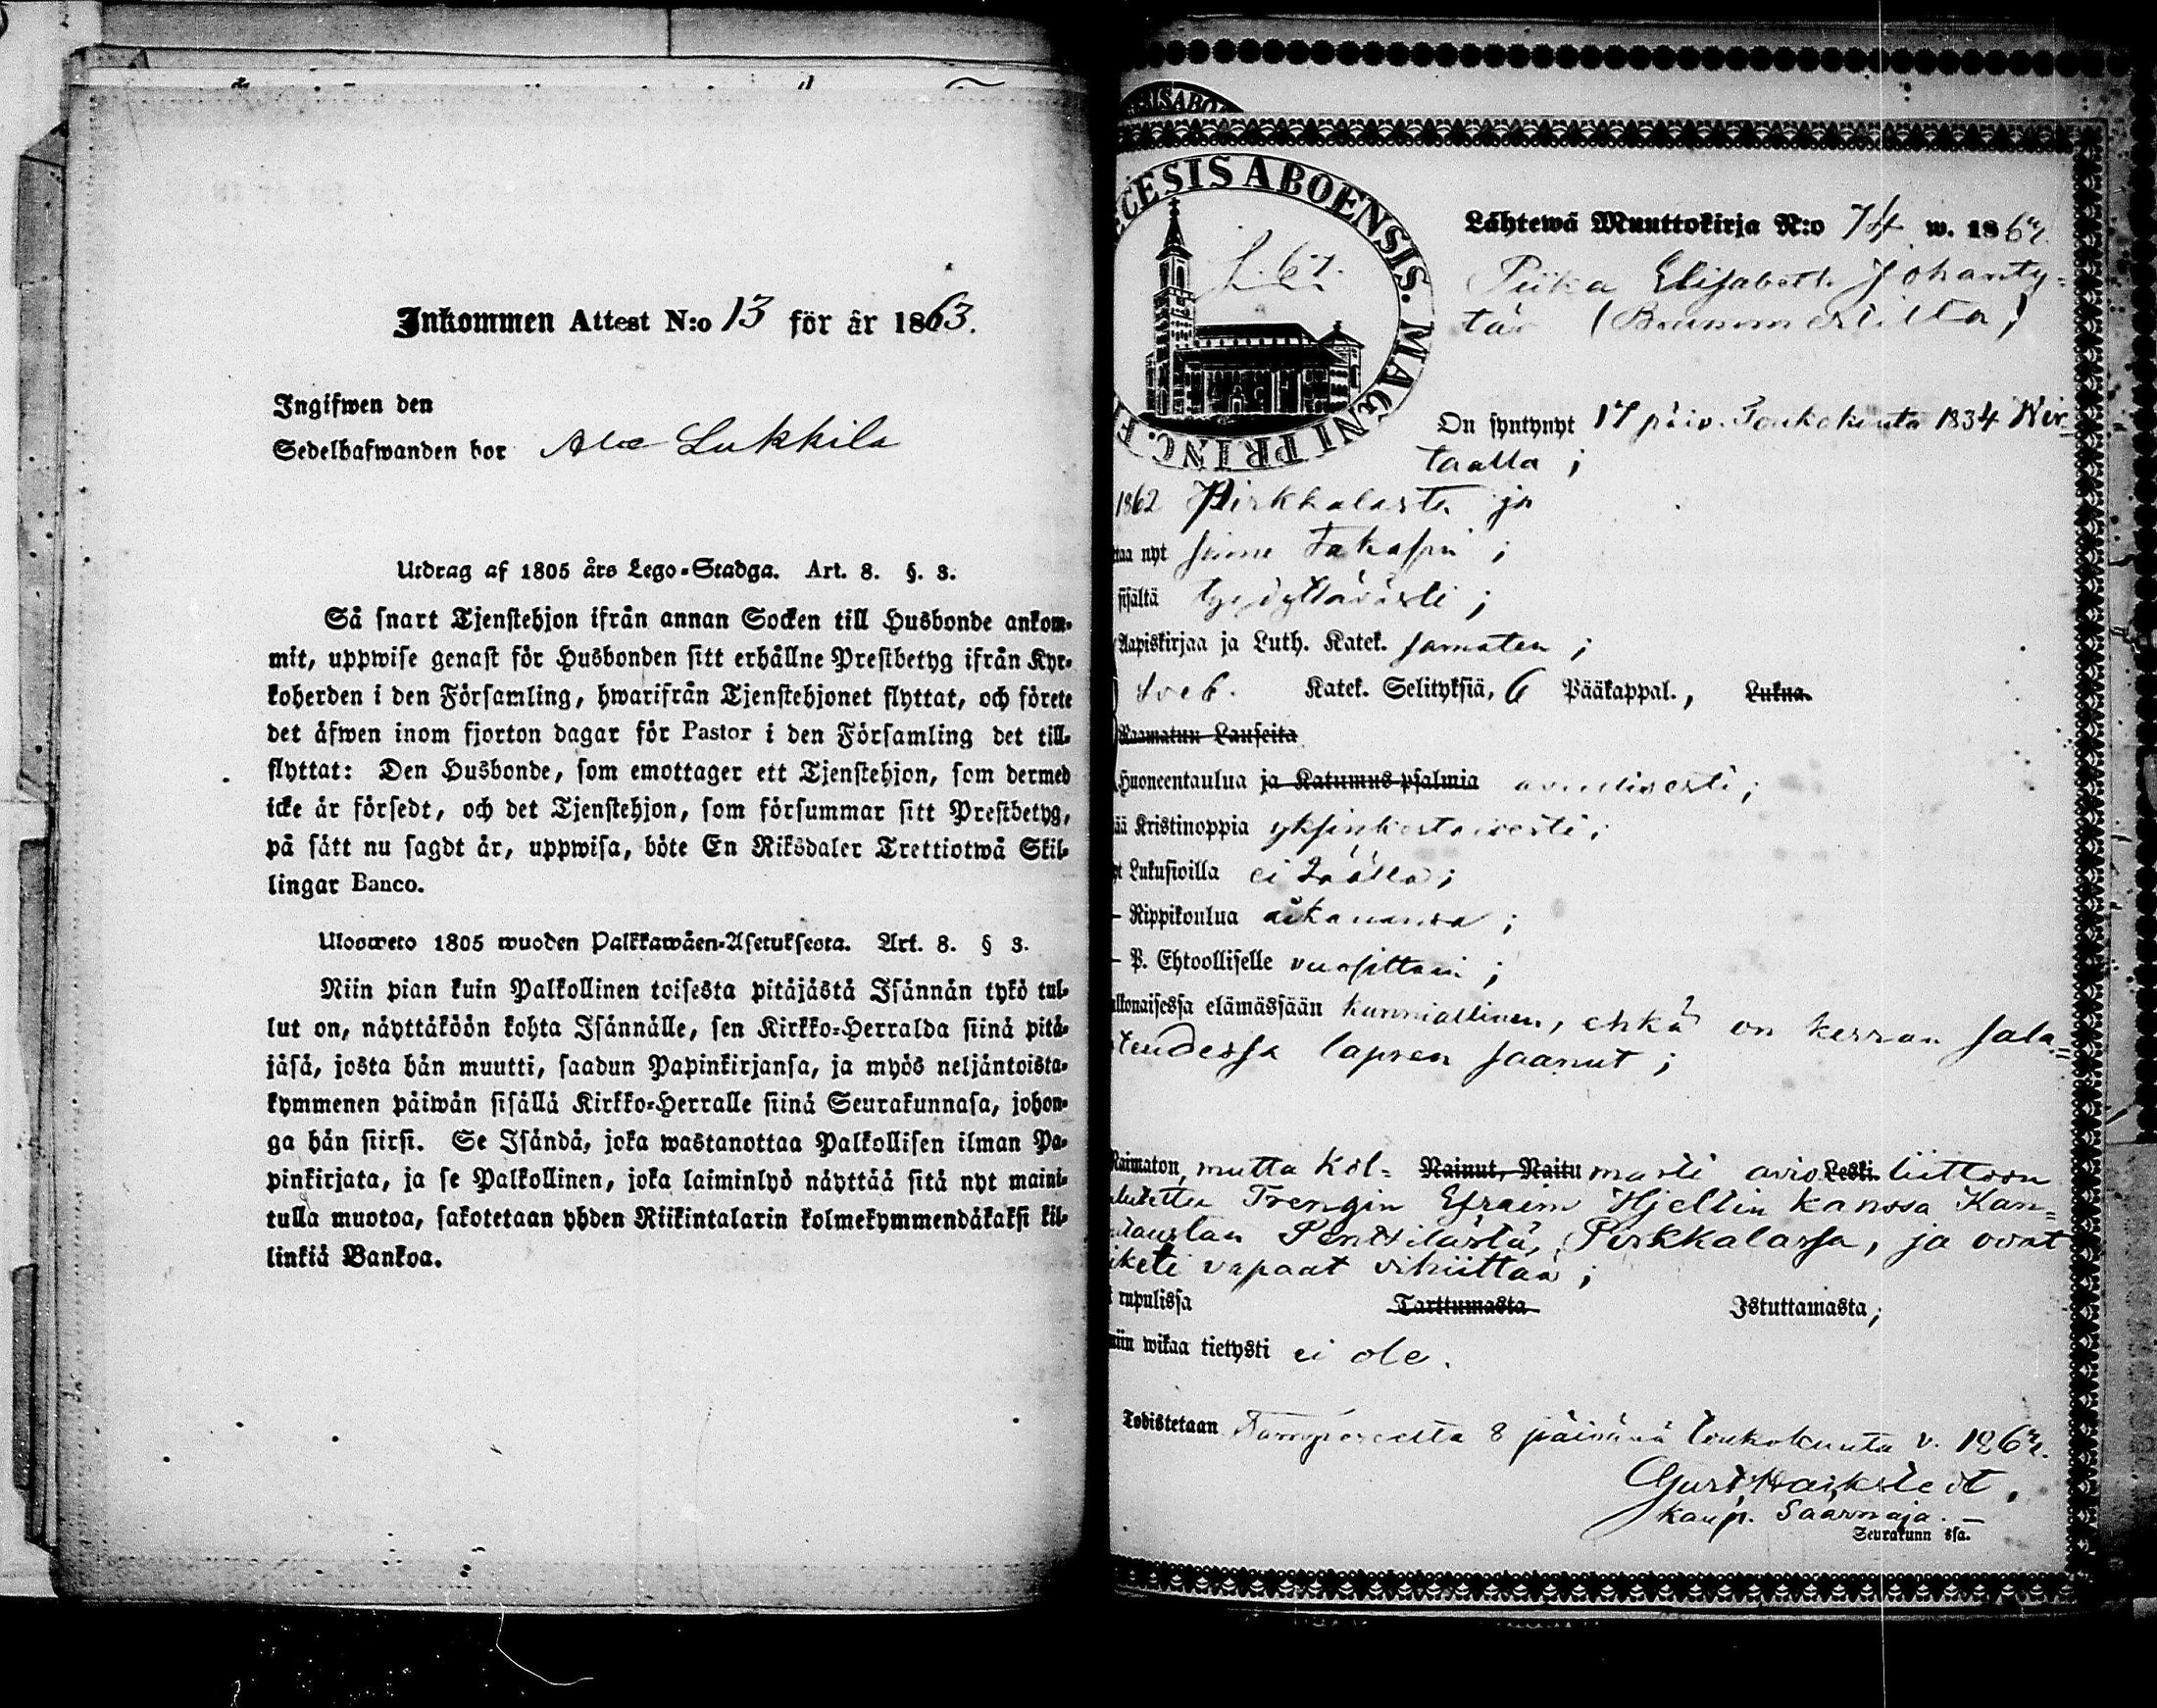 Inkommen Attest N:o 13 för år 1863.
Ingifwen den
Sedelhafwanden bor Ala Lukkila
Utdrag af 1805 års Lego-Stadga. Art. 8. §. 3.
Så snart Tjenstehjon ifrån annan Socken till Husbonde ankom-
mit, uppwise genast för Husbonden sitt erhållne Prestbetyg ifrån Kyr-
koherden i den Församling, hwarifrån Tjenstehjonet flyttat, och förete
det äfwen inom fjorton dagar för Pastor i den Församling det till-
flyttat: Den Husbonde, som emottager ett Tjenstehjon, som dermed
icke är försedt, och det Tjenstehjon, som försummar sitt Prestbetyg,
på sätt nu sagdt är, uppwisa, böte En Riksdaler Trettiotwå Skil-
lingar Banco.
Ulosweto 1805 wuoden Palkkawäen-Asetuksesta. Art. 8. § 3.
Niin pian kuin Palkollinen toisesta pitäjästä Isännän tykö tul-
lut on, näyttäköön kohta Isännälle, sen Kirkko-Herralda siinä pitä-
jäsä, josta hän muutti, saadun Papinkirjansa, ja myös neljäntoista-
kymmenen päiwän sisällä Kirkko-Herralle siinä Seurakunnasa, johon-
ga hän siirsi. Se Isändä, joka wastanottaa Palkollisen ilman Pa-
pinkirjata, ja se Palkollinen, joka laiminlyö näyttää sitä nyt maini-
tulla muotoa, sakotetaan yhden Riikintalarin kolmekymmendäkaksi kil-
linkiä Bankoa.
CESIS ABOENSIS. MAGNI PRINC. F
Lähtewä Muuttokirja N:o 74 w. 186
Piika Elisabeth Johanty-
tär
On syntynyt 17 päiv. Toukokuuta 1834 Wir-
taalla ;
1862 Pirkkalasta ja
taa nyt sinne Takasin ;
sisältä tyydyttävästi ;
Aapiskirjaa ja Luth. Katek. samaten ;
Sveb. Katek. Selityksiä, 6 Pääkappal., Lukua.
Raamatun Lauseita
Huoneentaulua ja Katumus-psalmia
ää Kristinoppia yksinkertaisesti ;
Lukusioilla ei täällä ;
Rippikoulua aikanansa ;
P. Ehtoolliselle vuosittain ;
ulkonaisessa elämässään kunniallinen, ehkä on kerran sala=
teudessa lapsen saanut ;
Naimaton, mutta kol= Nainut, Naitu masti avio Leski liittoon
Trengin Efraim Hjellin kanssa Kan=
Penttilästä, Pirkkalassa, ja ovat
vapaat vihittää ;
rupulissa Tarttumasta Istuttamasta ;
wikaa tietysti ei ole.
Todistetaan Tampereelta 8 päivänä toukokuuta v. 186
kaup. Saarnaja.
Seurakunn ssa.